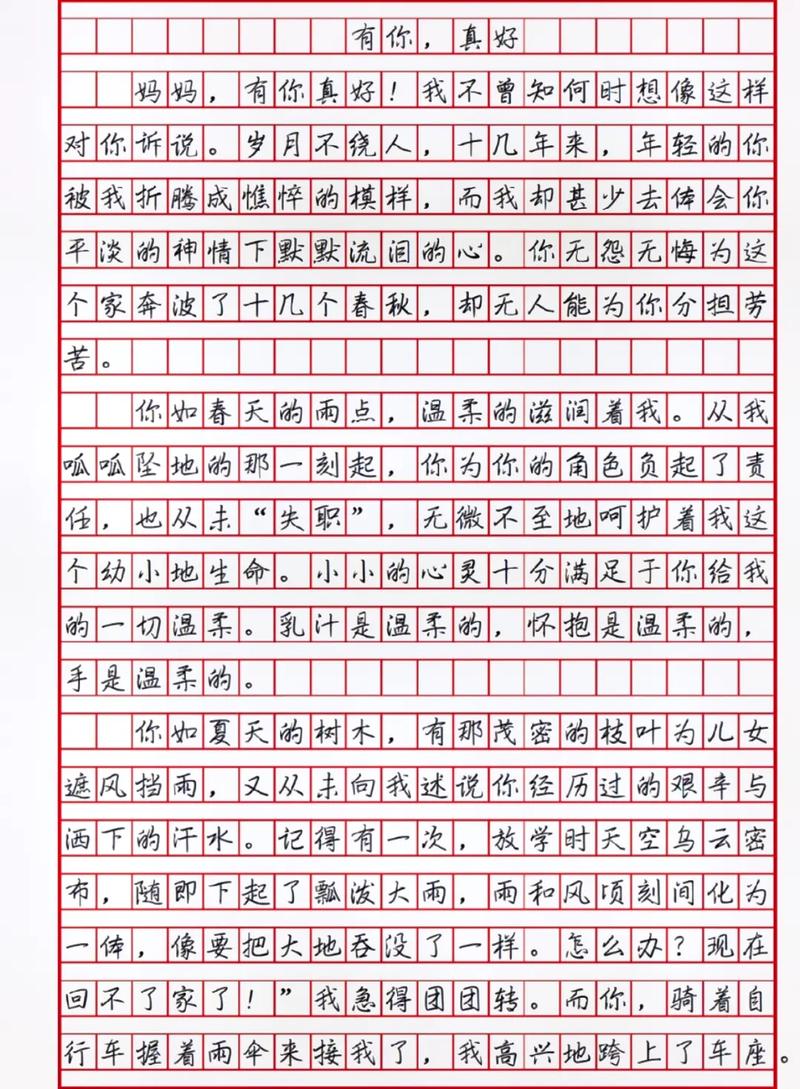 有你，真好
妈妈，有你真好！我不曾知何时想像这样
对你诉说。岁月不绕人，十几年来，年轻的你
被我折腾成憔悴的模样，而我却甚少去体会你
平淡的神情下默默流泪的心。你无怨无悔为这
个家奔波了十几个春秋，却无人能为你分担劳
苦。
你如春天的雨点，温柔的滋润着我。从我
呱呱坠地的那一刻起，你为你的角色负起了责
任，也从未“失职”，无微不至地呵护着我这
个幼小地生命。小小的心灵十分满足于你给我
的一切温柔。乳汁是温柔的，怀抱是温柔的，
手是温柔的。
你如夏天的树木，有那茂密的枝叶为儿女
遮风挡雨，又从未向我述说你经历过的艰辛与
洒下的汗水。记得有一次，放学时天空乌云密
布，随即下起了瓢泼大雨，雨和风顷刻间化为
一体，像要把大地吞没了一样。怎么办？现在
回不了家了！”我急得团团转。而你，骑着自
行车握着雨伞来接我了，我高兴地跨上了车座。